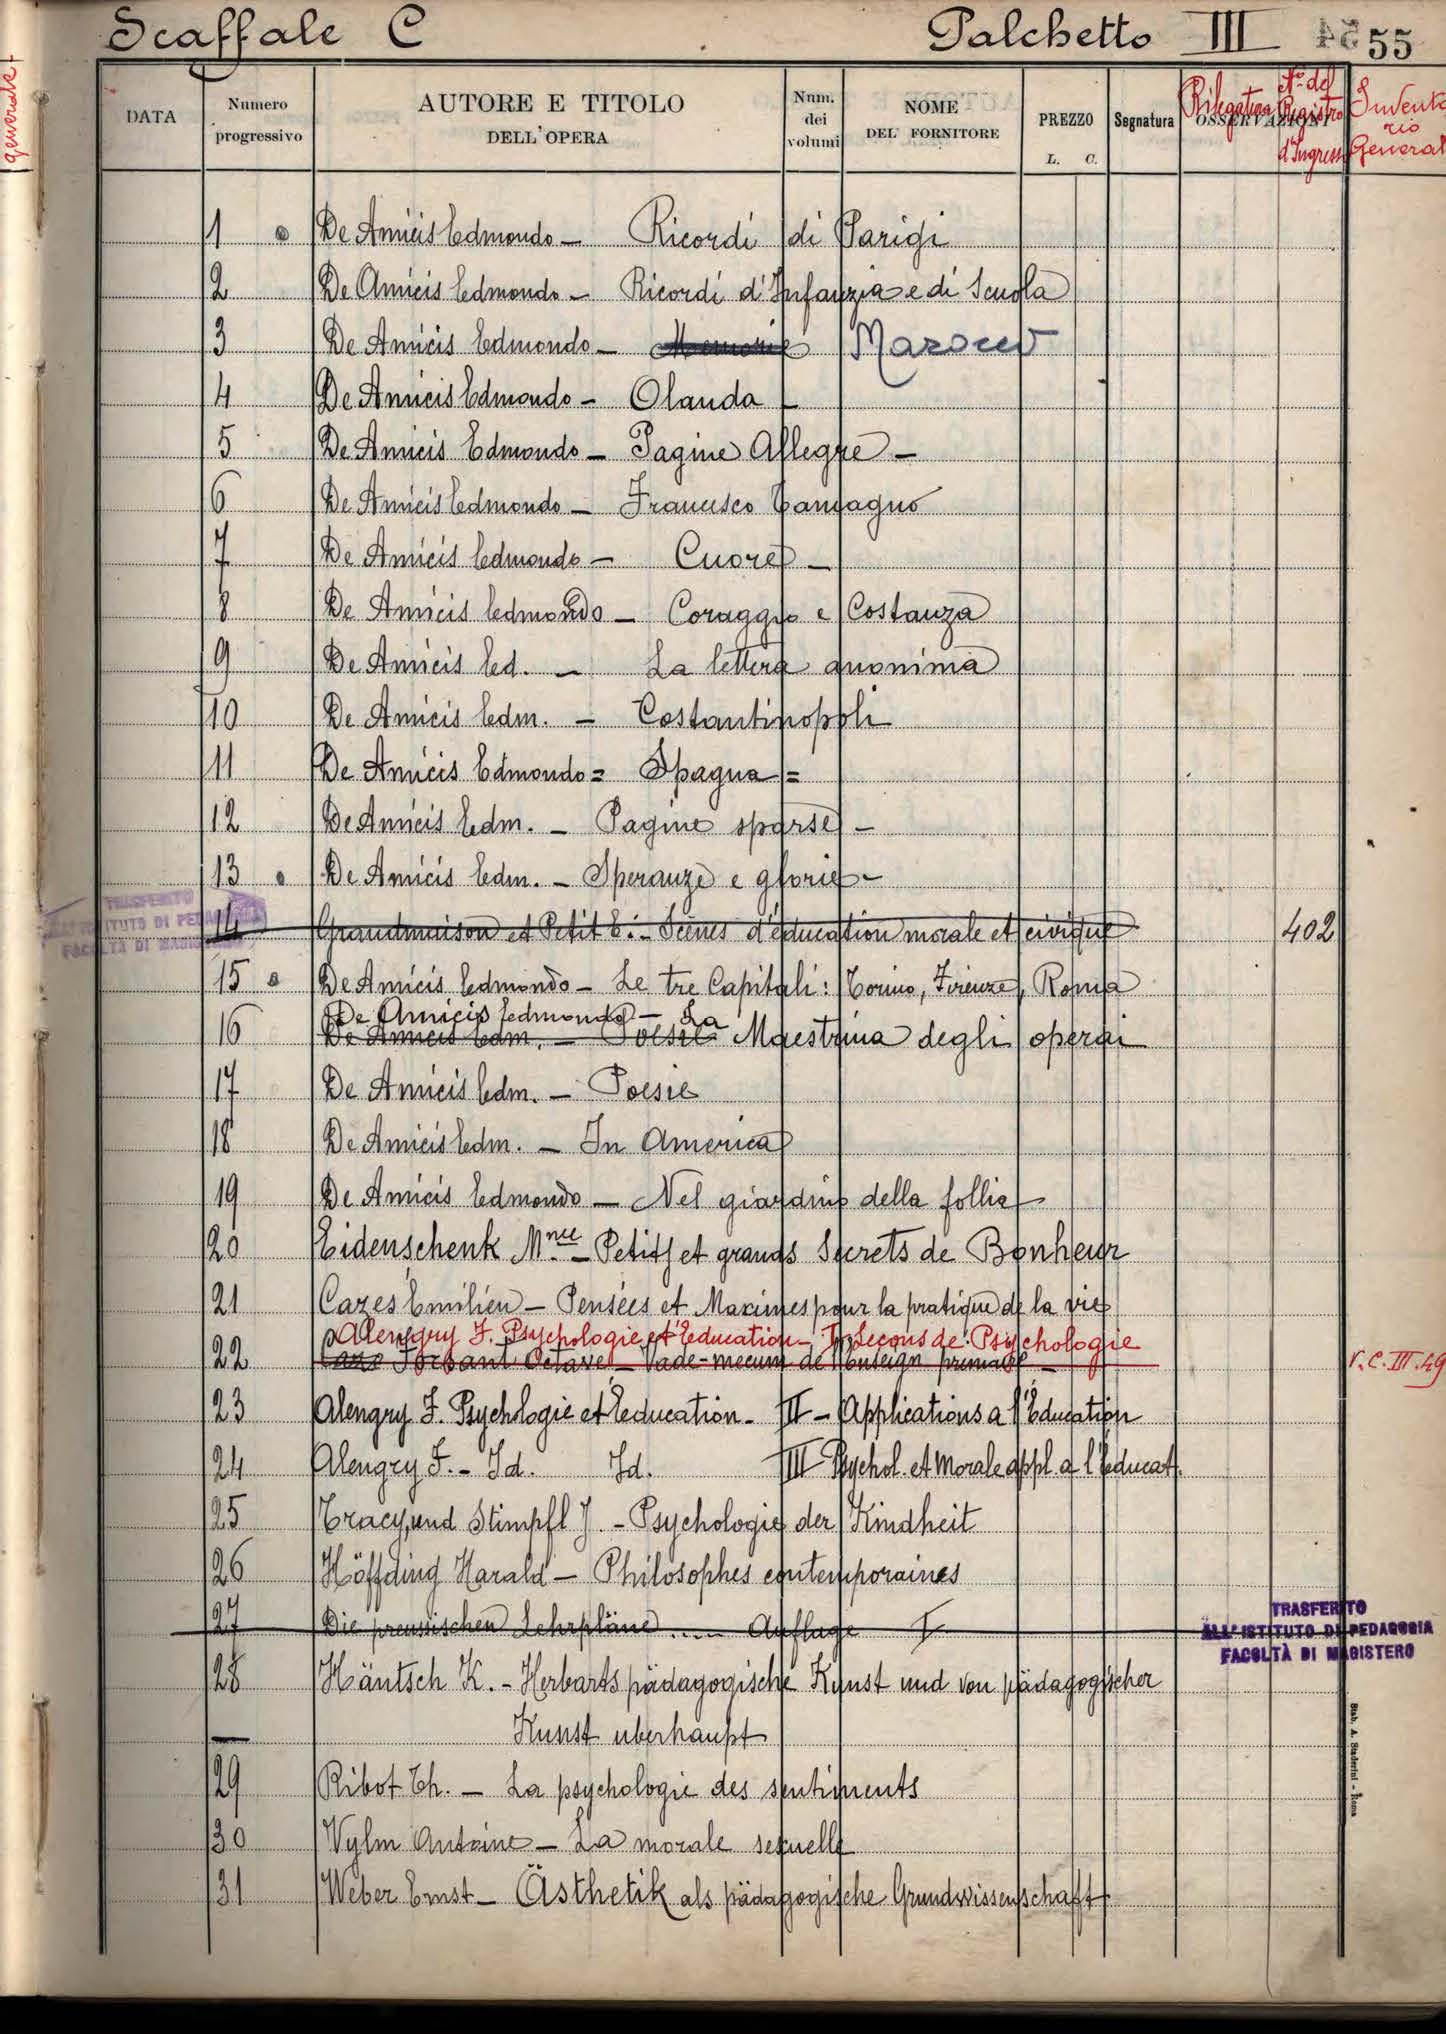 Scaffale C Palchetto III 54 55
generale
DATA
Numero progressivo
AUTORE E TITOLO DELL'OPERA
Num. dei volumi
NOME DEL FORNITORE
PREZZO L. C.
Segnatura
OSSERVAZIONI
Rilegatura
N.º del Registro d'Ingresso
Inventario Generale
1 De Amicis Edmondo - Ricordi di Parigi
2 De Amicis Edmondo - Ricordi d'Infanzia e di Scuola
3 De Amicis Edmondo - Memorie Marocco
4 De Amicis Edmondo - Olanda -
5 De Amicis Edmondo - Pagine Allegre -
6 De Amicis Edmondo - Francesco Tamagno
7 De Amicis Edmondo - Cuore -
8 De Amicis Edmondo - Coraggio e Costanza
9 De Amicis Ed. - La lettera anonima
10 De Amicis Edm. - Costantinopoli
11 De Amicis Edmondo = Spagna =
12 De Amicis Edm. - Pagine sparse -
13 De Amicis Edm. - Speranze e glorie -
TRASFERITO
ALL'ISTITUTO DI PEDAGOGIA
FACOLTÀ DI MAGISTERO
14 Grandmaison et Petit E. - Scènes d'éducation morale et civique 402
15 De Amicis Edmondo - Le tre Capitali: Torino, Firenze, Roma
De Amicis Edmondo - La
16 De Amicis Edm. - Poesie Maestrina degli operai
17 De Amicis Edm. - Poesie
18 De Amicis Edm. - In America
19 De Amicis Edmondo - Nel giardino della follia
20 Eidenschenk Mme - Petits et grands Secrets de Bonheur
21 Cazes Émilien - Pensées et Maximes pour la pratique de la vie
Alengry F. Psychologie et Education - I Leçons de Psychologie
22 Octave - Vade-mecum de l'enseign. primaire - V. C. III. 49
23 Alengry F. Psychologie et Éducation - II - Applications a l'Éducation
24 Alengry F. - Id. Id. III Psychol. et Morale appl. a l'éducat.
25 Tracy, und Stimpfl J. - Psychologie der Kindheit
26 Höffding Harald - Philosophes contemporaines
27 Die preussischen Lehrpläne .... Auflage
TRASFERITO
ALL'ISTITUTO DI PEDAGOGIA
FACOLTÀ DI MAGISTERO
28 Häntsch K. - Herbarts pädagogische Kunst und von pädagogischer
- Kunst uberhaupt
29 Ribot Th. - La psychologie des sentiments
30 Vylm Antoine - La morale sexuelle
31 Weber Ernst - Ästhetik als pädagogische Grundwissenschaft
Stab. A. Staderini - Roma